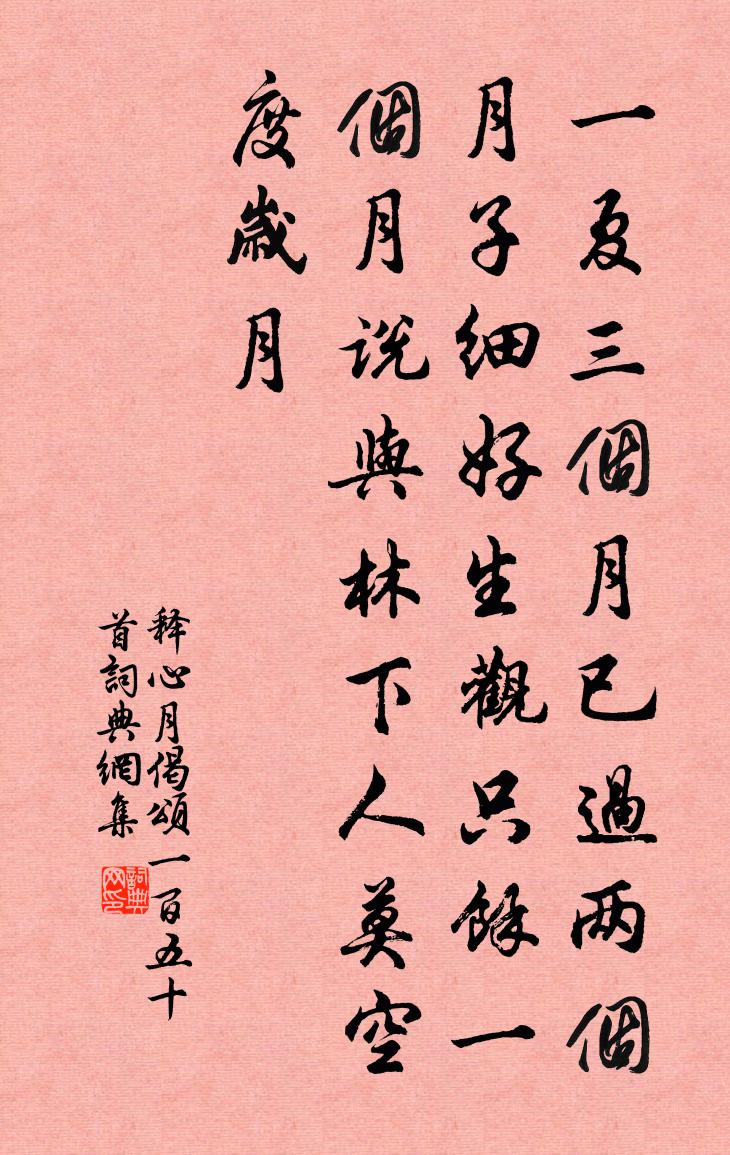 一夏三個月已過两個
月子細好生觀只餘一
個月説與林下人莫空
度歲月
释心月偈頌一百五十
首詞典網集
詞典
网印